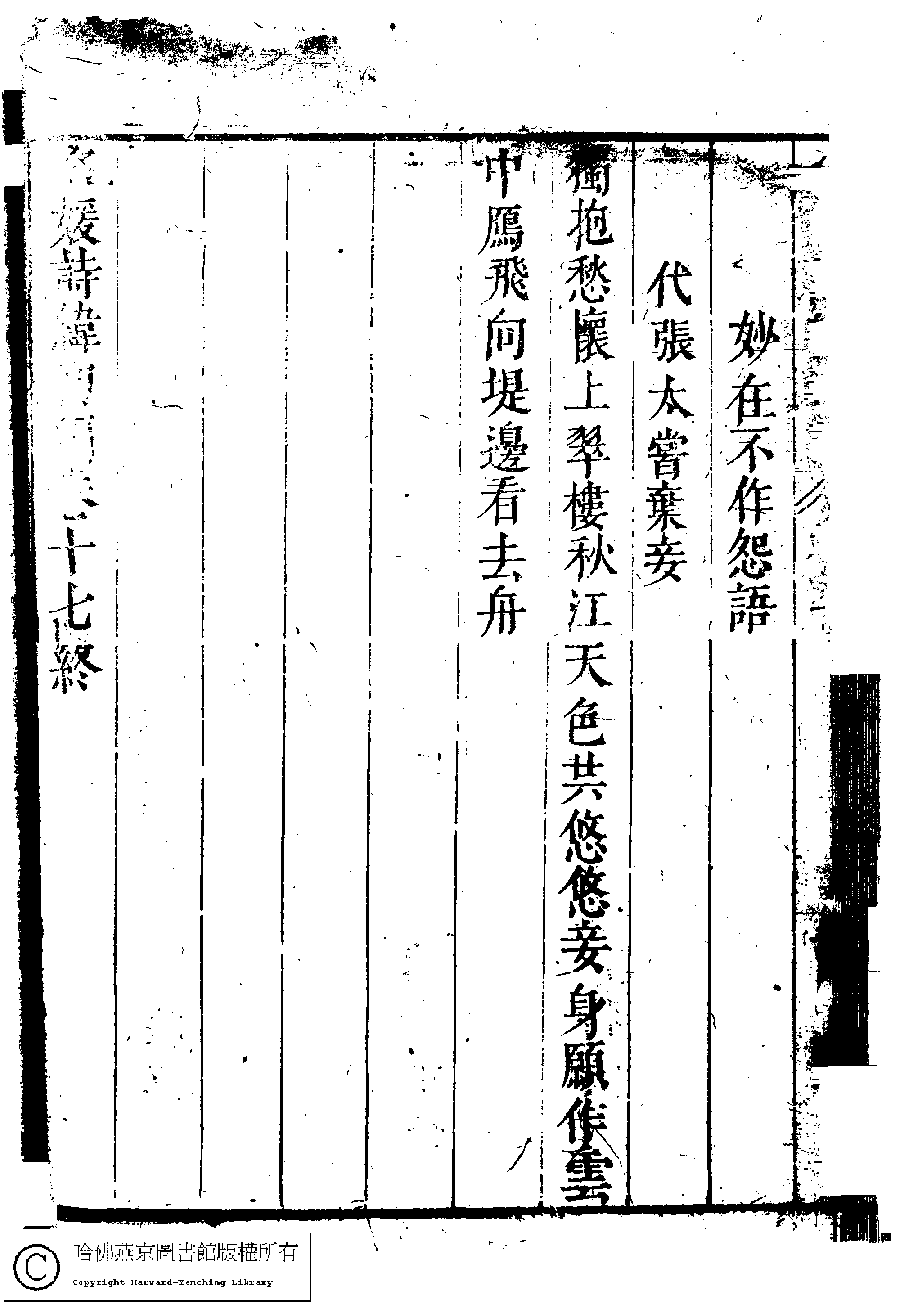 妙在不作怨語
代張太嘗棄妾
獨抱愁懷上翠樓秋江天色共悠悠妾身願作雲
中鴈飛向堤邊看去舟
名媛詩緯初編卷二十七終
哈佛燕京圖書館版權所有
Copyright Harvard-Yenching Library